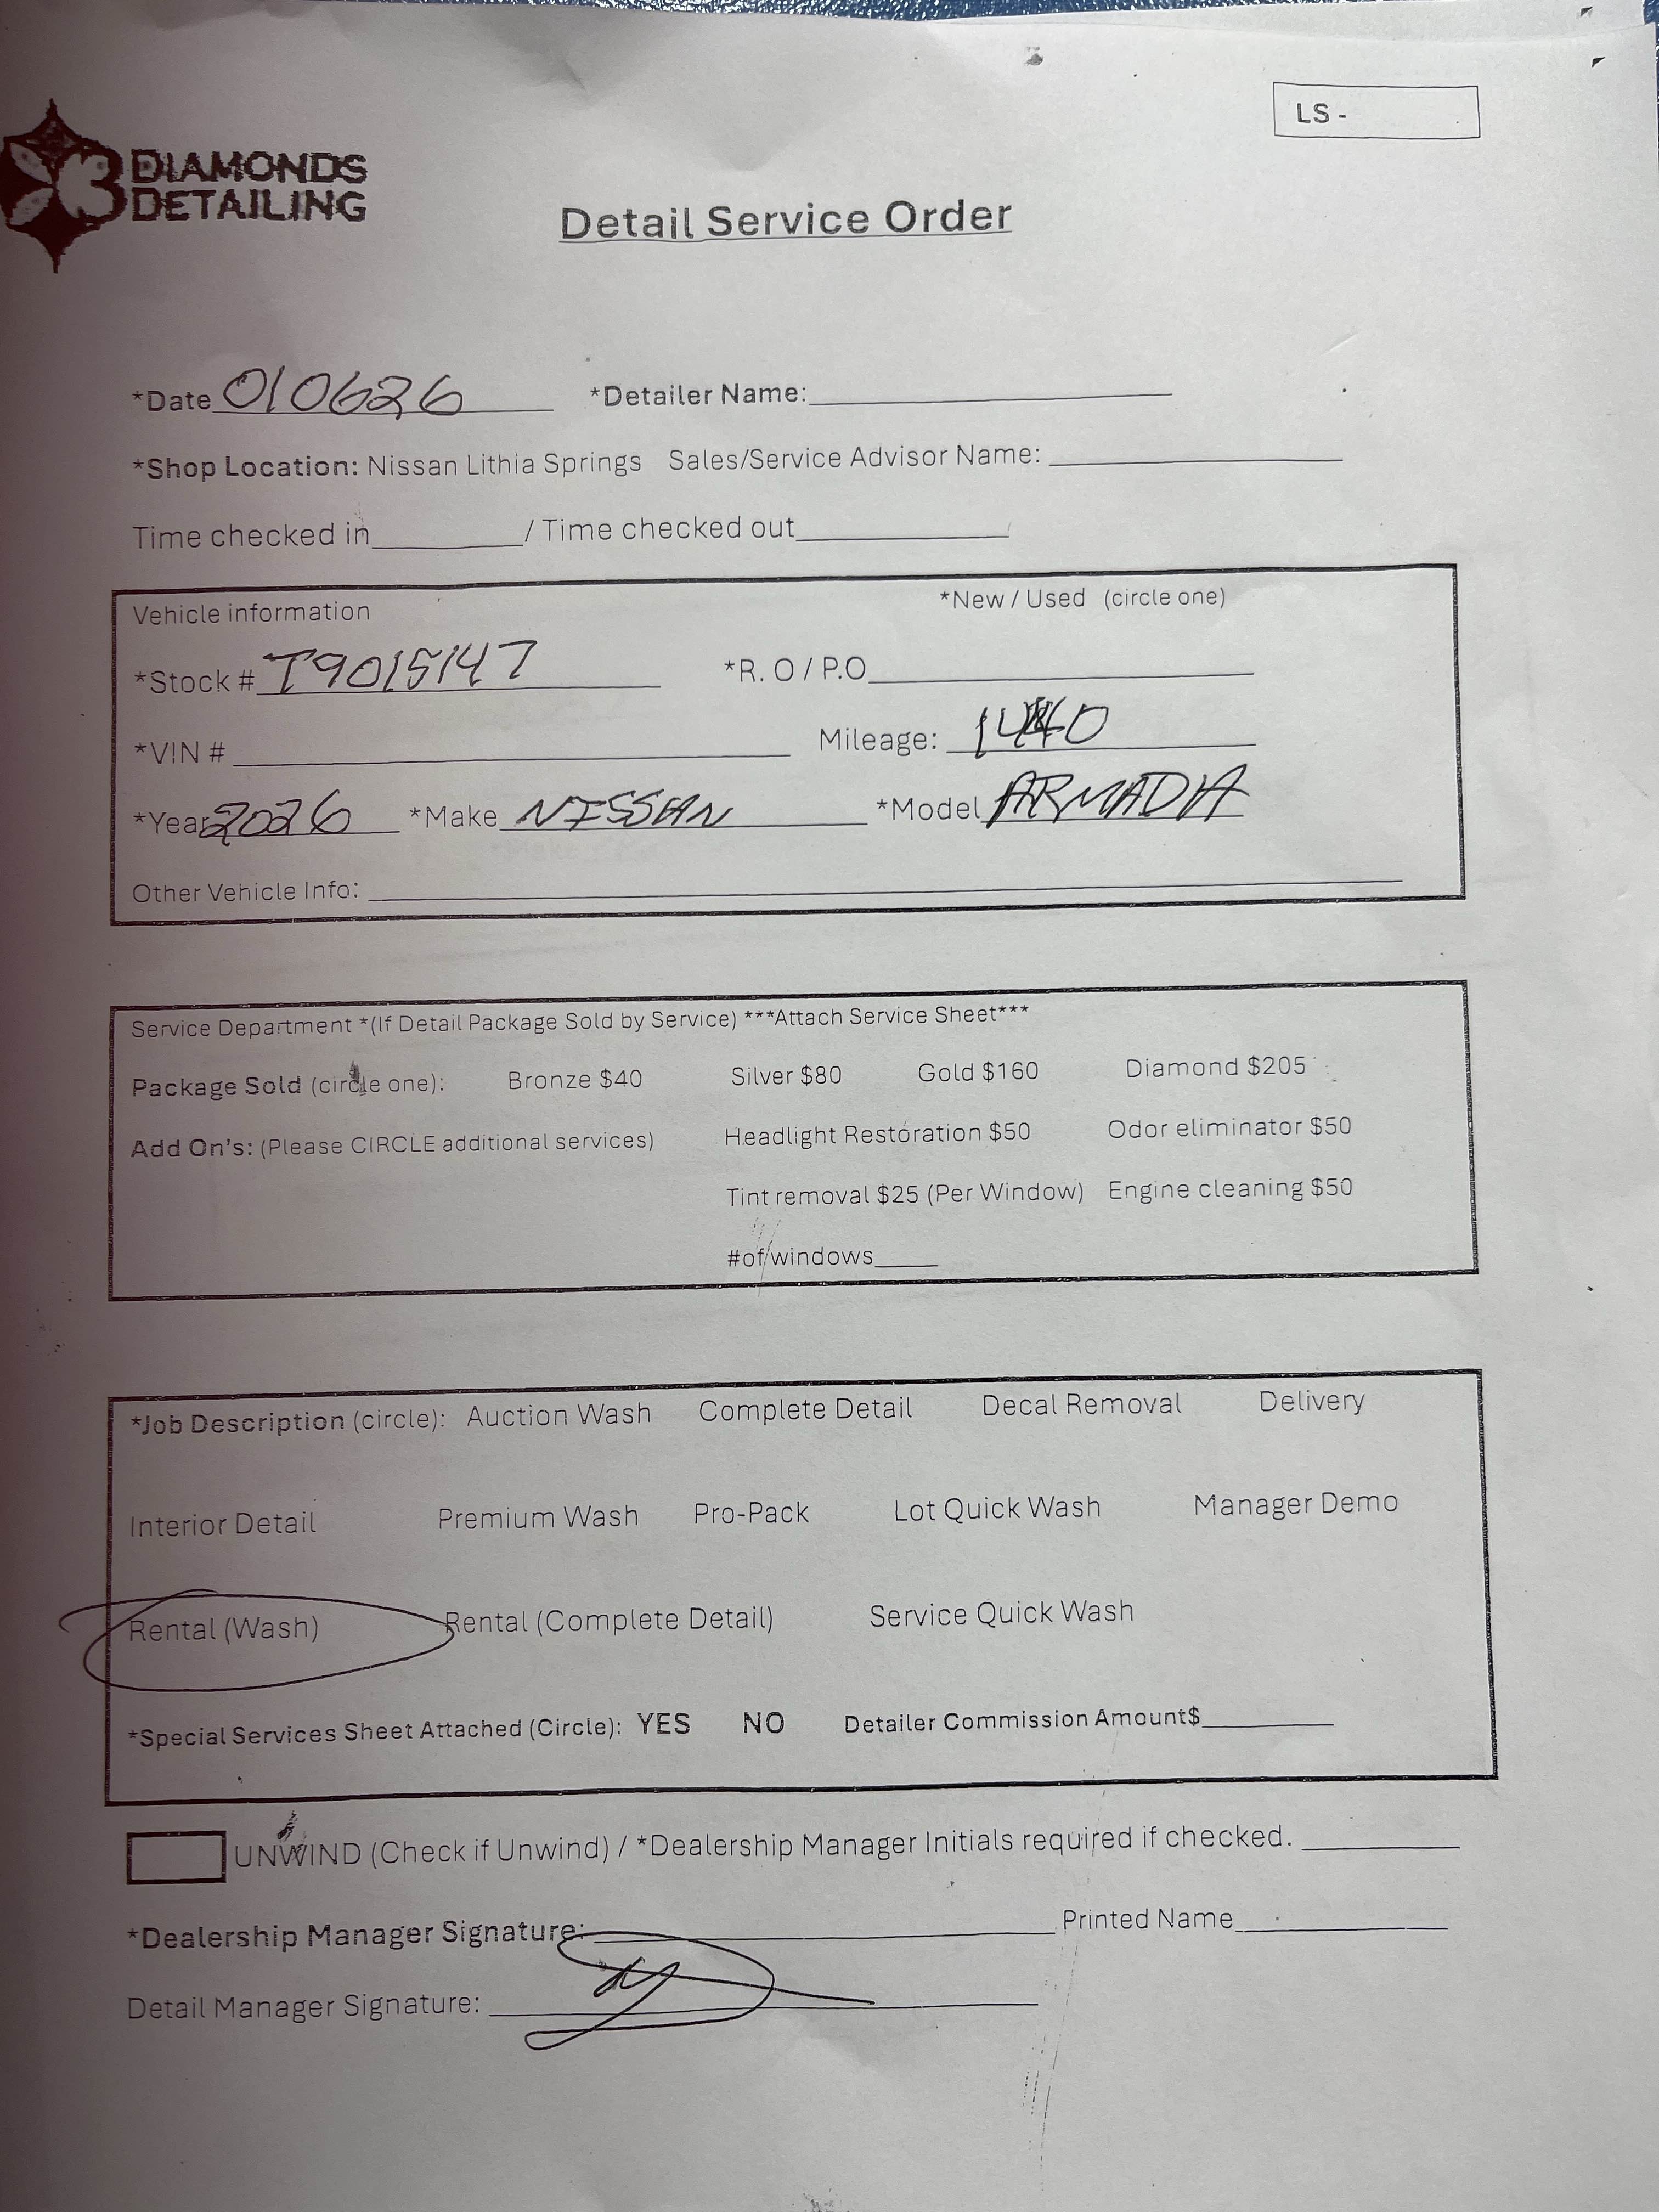 LS -
3 DIAMONDS
DETAILING
Detail Service Order
*Date 010626 *Detailer Name:
*Shop Location: Nissan Lithia Springs Sales/Service Advisor Name:
Time checked in / Time checked out
Vehicle information *New / Used (circle one)
*Stock # T9015147 *R. O / P.O
*VIN # Mileage:
*Year 2026 *Make NISSAN *Model ARMADA
Other Vehicle Info:
Service Department *(If Detail Package Sold by Service) ***Attach Service Sheet***
Package Sold (circle one): Bronze $40 Silver $80 Gold $160 Diamond $205
Add On's: (Please CIRCLE additional services) Headlight Restoration $50 Odor eliminator $50
Tint removal $25 (Per Window) Engine cleaning $50
#of windows
*Job Description (circle): Auction Wash Complete Detail Decal Removal Delivery
Interior Detail Premium Wash Pro-Pack Lot Quick Wash Manager Demo
Rental (Wash) Rental (Complete Detail) Service Quick Wash
*Special Services Sheet Attached (Circle): YES NO Detailer Commission Amount$
UNWIND (Check if Unwind) / *Dealership Manager Initials required if checked.
*Dealership Manager Signature: Printed Name
Detail Manager Signature: